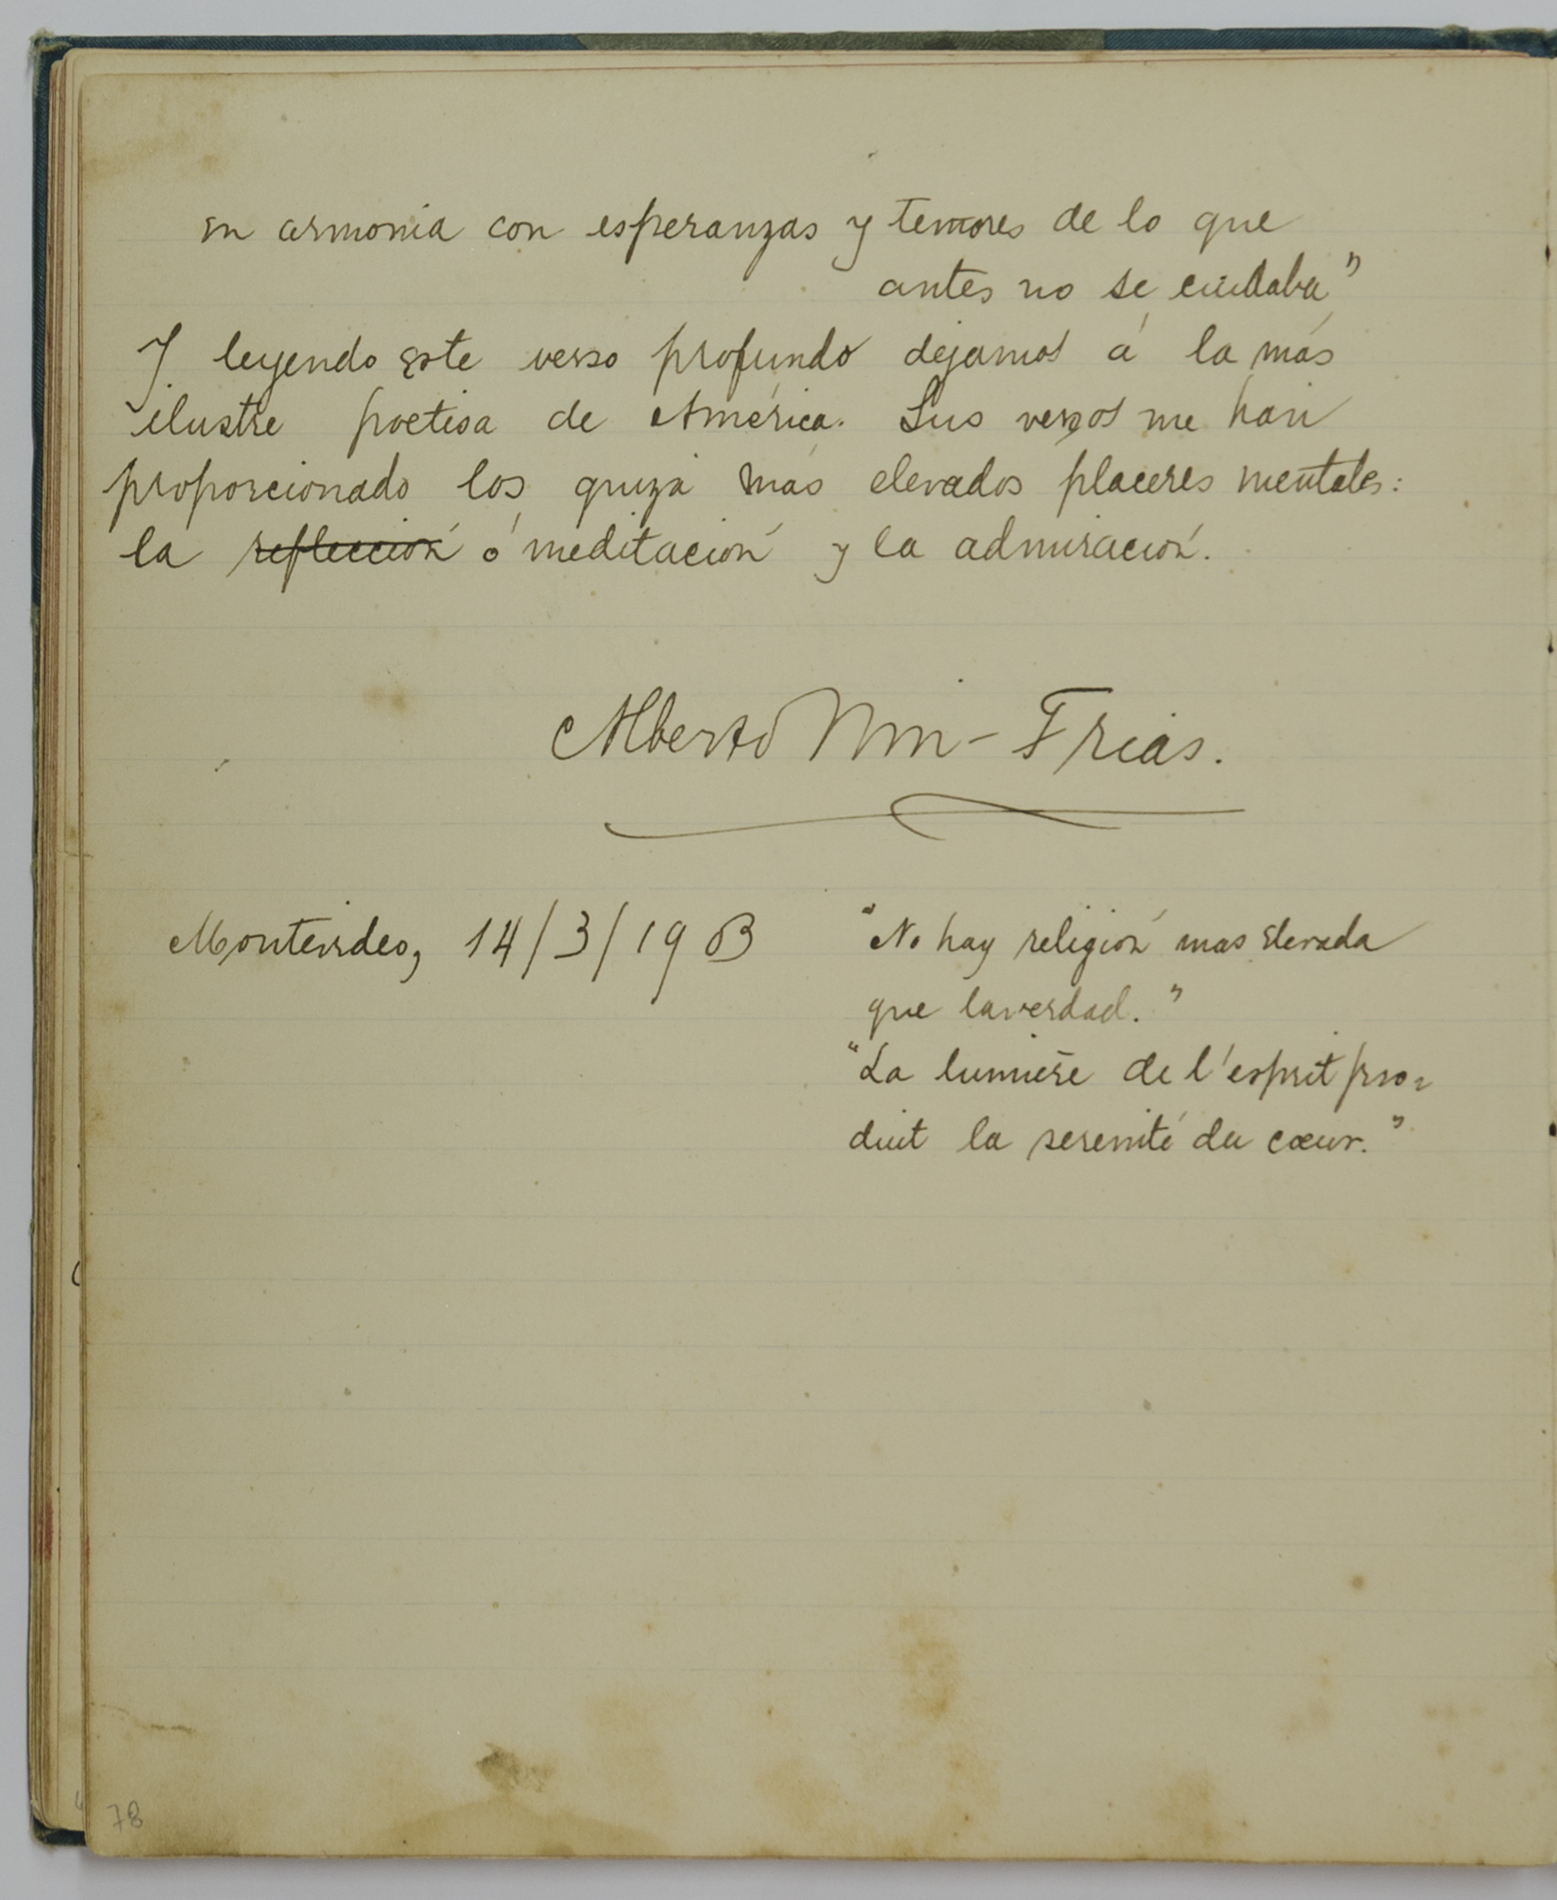 en armonia con esperanzas y temores de lo que
antes no se cuidaba"
Y leyendo este verso profundo dejamos á la más
ilustre poetisa de América. Sus versos me han
proporcionado los quizá mas elevados placeres mentales:
la reflección ó meditación y la admiración.
Alberto Nin-Frias.
Montevideo, 14/3/1903
"No hay religión mas elevada
que la verdad."
"La lumière de l'esprit pro-
duit la serenité du cœur."
78